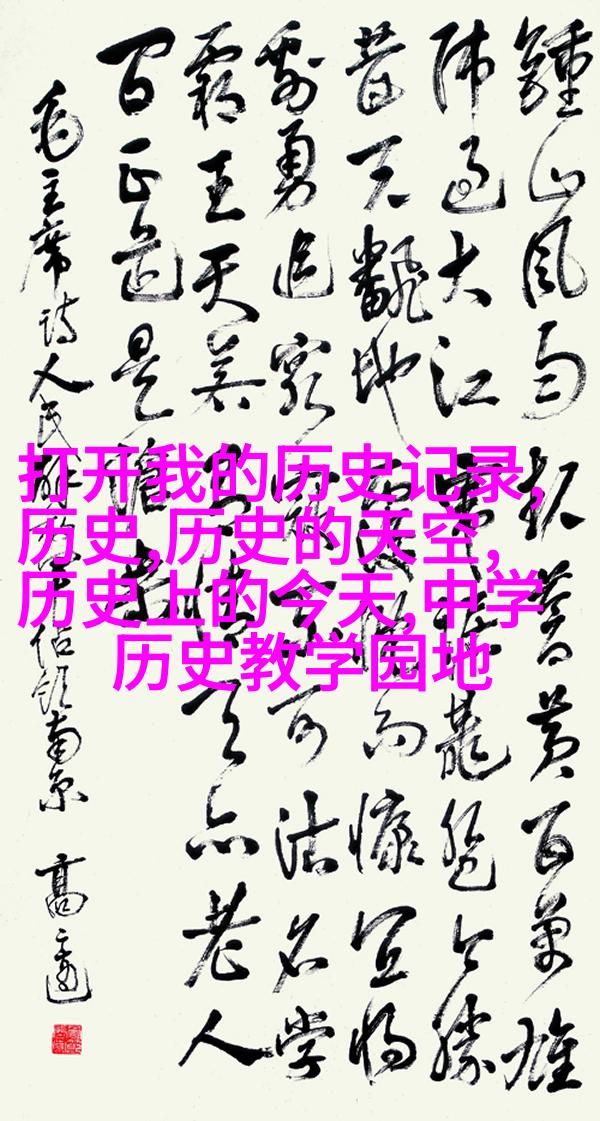 鍾山風雨起蒼黄百萬雄
师過大江虎踞龍盤今勝
昔天翻地覆慨而慷宜将
剩勇追窮寇不可沽名学
霸王天若有情天亦老人
间正道是滄桑
毛主席诗人民解放军佔领南京 高
打开我的历史记录,
历史,历史的天空,
历史上的今天,中学
历史教学园地